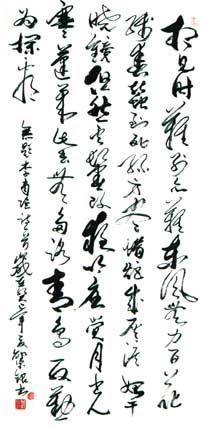 相見時難別亦難東風無力百花
殘春蠶到死絲方盡蠟炬成灰淚始干
曉鏡但愁雲鬢改夜吟應覺月光
寒蓬萊此去無多路青鳥殷勤
為探看
無題李商隱詩 歲 書